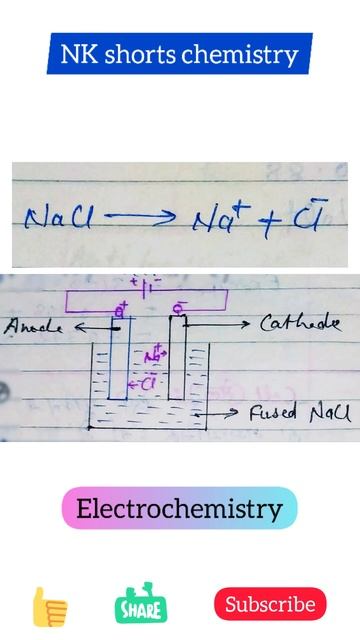 NK shorts chemistry
NaCl → Na⁺ + Cl⁻
+ -
Anode
Cathode
Na⁺
Cl⁻
Fused NaCl
Electrochemistry
SHARE
Subscribe